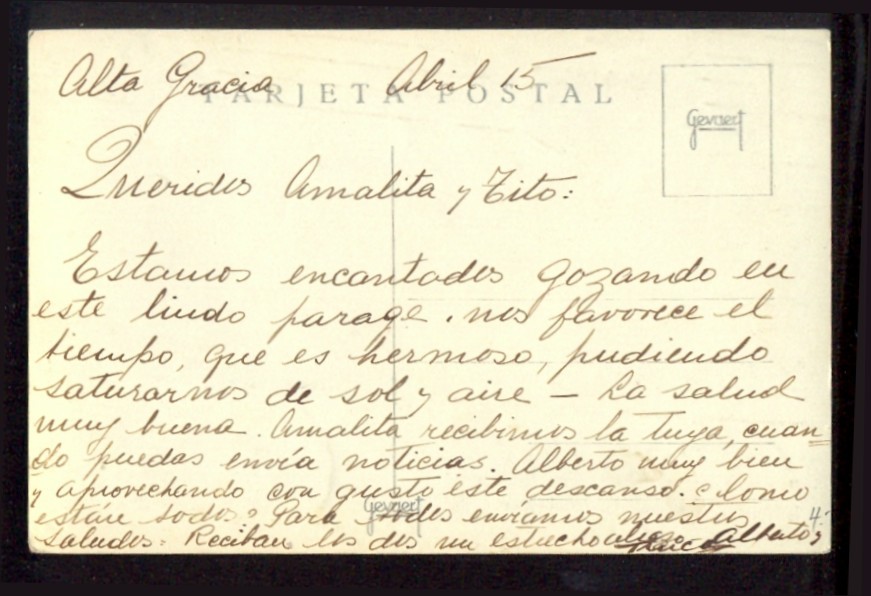 Alta Gracia Abril 15
TARJETA POSTAL
Gevaert
Queridos Amalita y Tito:
Estamos encantados gozando en
este lindo parage. nos favorece el
tiempo, que es hermoso, pudiendo
saturarnos de sol y aire – La salud
muy buena. Amalita recibimos la tuya, cuan=
do puedas envía noticias. Alberto muy bien
y aprovechando con gusto este descanso. Como
están todos? Para todos enviamos nuestros
Gevaert
saludos: Reciban los dos un estrecho Alberto y
4